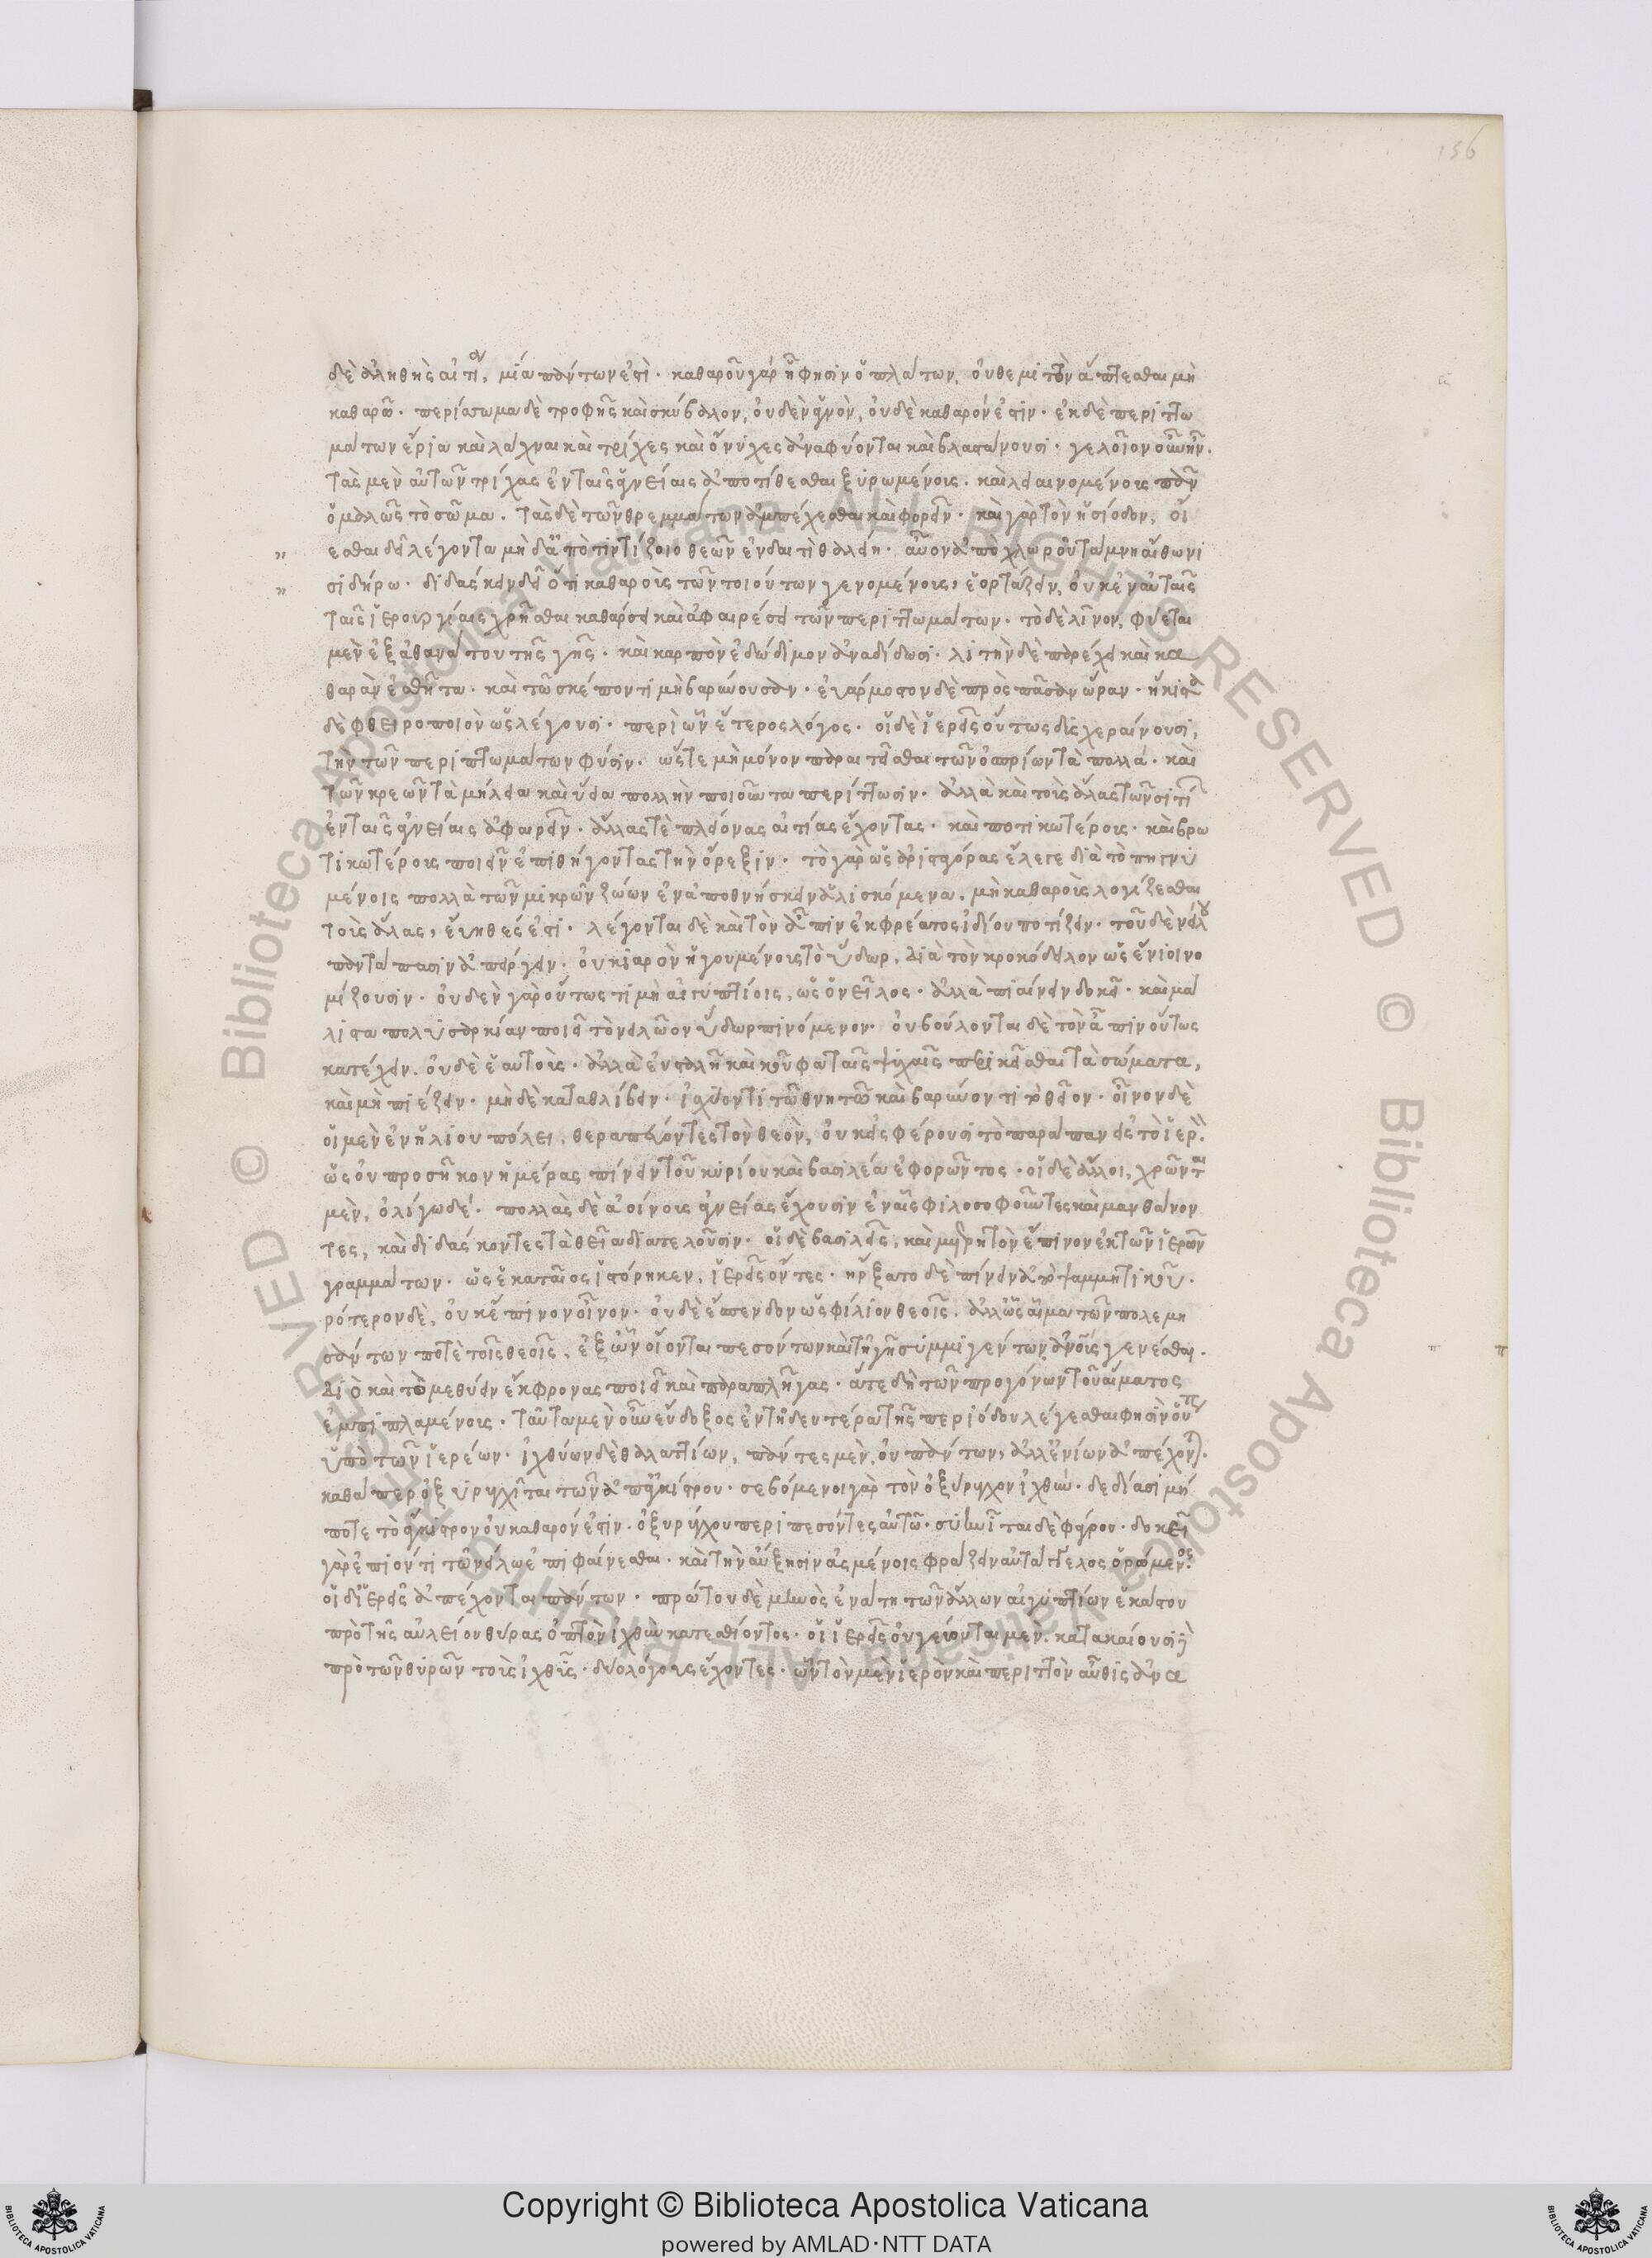 156
δὲ ἀληθὴς αἰτία, μία πάντων ἐστί· καθαροῦ γάρ ἧ φησὶν ὁ πλάτων, οὐ θεμιτὸν ἅπτεσθαι μὴ
καθαρῶ· περίσσωμα δὲ τροφῆς καὶ σκύβαλον, οὐδὲν ἁγνὸν, οὐδὲ καθαρόν ἐστιν· ἐκ δὲ περιττω
μάτων ἔρια καὶ λάχναι καὶ τρίχες καὶ ὄνυχες ἀναφύονται καὶ βλαστάνουσι· γελοῖον οὖν ἦν·
τὰς μὲν αὑτῶν τρίχας ἐν ταῖς ἁγνείαις ἀποτίθεσθαι ξυρωμένοις· καὶ λειαινομένοις πᾶν
ὁμαλῶς τὸ σῶμα· τὰς δὲ τῶν θρεμμάτων ἀμπέχεσθαι καὶ φορεῖν· καὶ γὰρ τὸν ἡσίοδον, οἴ
εσθαι δεῖ λέγοντα μὴ δ' ἀπὸ πεντόζοιο θεῶν ἐν δαιτὶ θαλείη· αὖον ἀπὸ χλωροῦ ταμνη αἴθωνι
σιδήρω· διδάσκειν δεῖ ὅτι καθαροὺς τῶν τοιούτων γενομένους, ἑορτάζειν, οὐκ ἐν αὐταῖς
ταῖς ἱερουργίαις χρῆσθαι καθάρσει καὶ ἀφαιρέσει τῶν περιττωμάτων· τὸ δὲ λῖνον, φύεται
μὲν ἐξ ἀθανάτου τῆς γῆς· καὶ καρπὸν ἐδώδιμον ἀναδίδωσι· λιτὴν δὲ παρέχει καὶ κα
θαρὰν ἐσθῆτα· καὶ τῶ σκέποντι μὴ βαρύνουσαν· εὐάρμοστον δὲ πρὸς πᾶσαν ὥραν· ἥκιστα
δὲ φθειροποιὸν ὡς λέγουσι· περὶ ὧν ἕτερος λόγος· οἱ δὲ ἱερεῖς οὕτως δυσχεραίνουσι,
τὴν τῶν περιττωμάτων φύσιν· ὥστε μὴ μόνον παραιτεῖσθαι τῶν ὀσπρίων τὰ πολλά· καὶ
τῶν κρεῶν τὰ μήλεια καὶ ὕεια πολλὴν ποιοῦντα περίττωσιν· ἀλλὰ καὶ τοὺς ἅλας τῶν σιτί
ἐν ταῖς ἁγνείαις ἀφαιρεῖν· ἄλλας τὲ πλείονας αἰτίας ἔχοντας· καὶ ποτικωτέρους· καὶ βρω
τικωτέρους ποιεῖν ἐπιθήγοντας τὴν ὄρεξιν· τὸ γὰρ ὡς ἀρισταγόρας ἔλεγε διὰ τὸ πηγνυ
μένοις πολλὰ τῶν μικρῶν ζώων ἐναποθνήσκειν ἁλισκόμενα, μὴ καθαροὺς λογίζεσθαι
τοὺς ἅλας, εὔηθές ἐστι· λέγονται δὲ καὶ τὸν ἆπιν ἐκ φρέατος ἰδίου ποτίζειν· τοῦ δὲ νείλου
πάνταπασιν ἀπείργειν· οὐ μιαρὸν ἡγουμένοις τὸ ὕδωρ, διὰ τὸν κροκόδειλον ὡς ἔνιοι νο
μίζουσιν· οὐδὲν γὰρ οὕτως τιμὴ αἰγυπτίοις, ὡς ὁ νεῖλος· ἀλλὰ πιαίνειν δοκεῖ· καὶ μά
λιστα πολυσαρκίαν ποιεῖ τὸν νειλῶον ὕδωρ πινόμενον· οὐ βούλονται δὲ τὸν ἆπιν οὕτως
κατέχειν. οὐδὲ ἑαυτοὺς· ἀλλὰ εὐσταλῆ καὶ κοῦφα ταῖς ψυχαῖς περικεῖσθαι τὰ σώματα,
καὶ μὴ πιέζειν· μὴ δὲ καταθλίβειν· ἰσχύοντι τῶ θνητῶ καὶ βαρύνοντι τὸ θεῖον· οἶνον δὲ
οἱ μὲν ἐν ἡλίου πόλει, θεραπεύοντες τὸν θεὸν, οὐκ εἰσφέρουσι τὸ παράπαν εἰς τὸ ἱερὸν·
ὡς οὐ προσῆκον ἡμέρας πίνειν τοῦ κυρίου καὶ βασιλέως ἐφορῶντος· οἱ δὲ ἄλλοι, χρῶνται
μὲν, ὀλίγω δέ· πολλὰς δὲ ἀοίνους ἁγνείας ἔχουσιν ἐν αἷς φιλοσοφοῦντες καὶ μανθάνον
τες, καὶ διδάσκοντες τὰ θεῖα διατελοῦσιν· οἱ δὲ βασιλεῖς, καὶ μετρητὸν ἔπινον ἐκ τῶν ἱερῶν
γραμμάτων· ὡς ἑκαταῖος ἱστόρηκεν, ἱερεῖς ὄντες· ἤρξατο δὲ πίνειν ἀπὸ ψαμμητίχου·
ρότερον δὲ, οὐκ ἔπινον οἶνον· οὐδὲ ἔσπενδον ὡς φίλιον θεοῖς· ἀλλ' ὡς αἷμα τῶν πολεμη
σάντων ποτὲ τοῖς θεοῖς, ἐξ ὧν οἴονται πεσόντων καὶ τῆ γῆ συμμιγέντων, ἀμπέλους γενέσθαι·
διὸ καὶ τὸ μεθύειν ἔκφρονας ποιεῖ καὶ παραπλῆγας· ἅτε δὴ τῶν προγόνων τοῦ αἵματος
ἐμπιπλαμένους· ταῦτα μὲν οὖν εὔδοξος ἐν τῆ δευτέρα τῆς περιόδου λέγεσθαι φησὶν οὕτως
ὑπὸ τῶν ἱερέων· ἰχθύων δὲ θαλαττίων, πάντες μὲν, οὐ πάντων, ἀλλ' ἐνίων ἀπέχονται·
καθάπερ ὀξυρυγχῖται τῶν ἀπ' ἀγκίστρου· σεβόμενοι γὰρ τὸν ὀξύρυγχον ἰχθὺν· δεδίασι μή
ποτε τὸ ἄγκιστρον οὐ καθαρόν ἐστιν· ὀξυρύγχου περιπεσόντες αὐτῶ· συηνῖται δὲ φάγρου· δοκεῖ
γὰρ ἐπιόντι τῶ νείλω ἐπιφαίνεσθαι· καὶ τὴν αὔξησιν ἀσμένοις φράζειν αὐτάγγελος ὁρώμενος·
οἱ δ' ἱερεῖς ἀπέχονται πάντων· πρώτου δὲ μηνὸς ἐνάτη τῶν ἄλλων αἰγυπτίων ἑκάστου
πρὸ τῆς αὐλείου θύρας ὀπτὸν ἰχθὺν κατεσθίοντος· οἱ ἱερεῖς οὐ γεύονται μὲν. κατακαίουσι δὲ
πρὸ τῶν θυρῶν τοὺς ἰχθῦς· δύο λόγους ἔχοντες· ὧν τὸν μὲν ἱερὸν καὶ περιττὸν αὖθις ἀνα
Copyright © Biblioteca Apostolica Vaticana
powered by AMLAD·NTT DATA